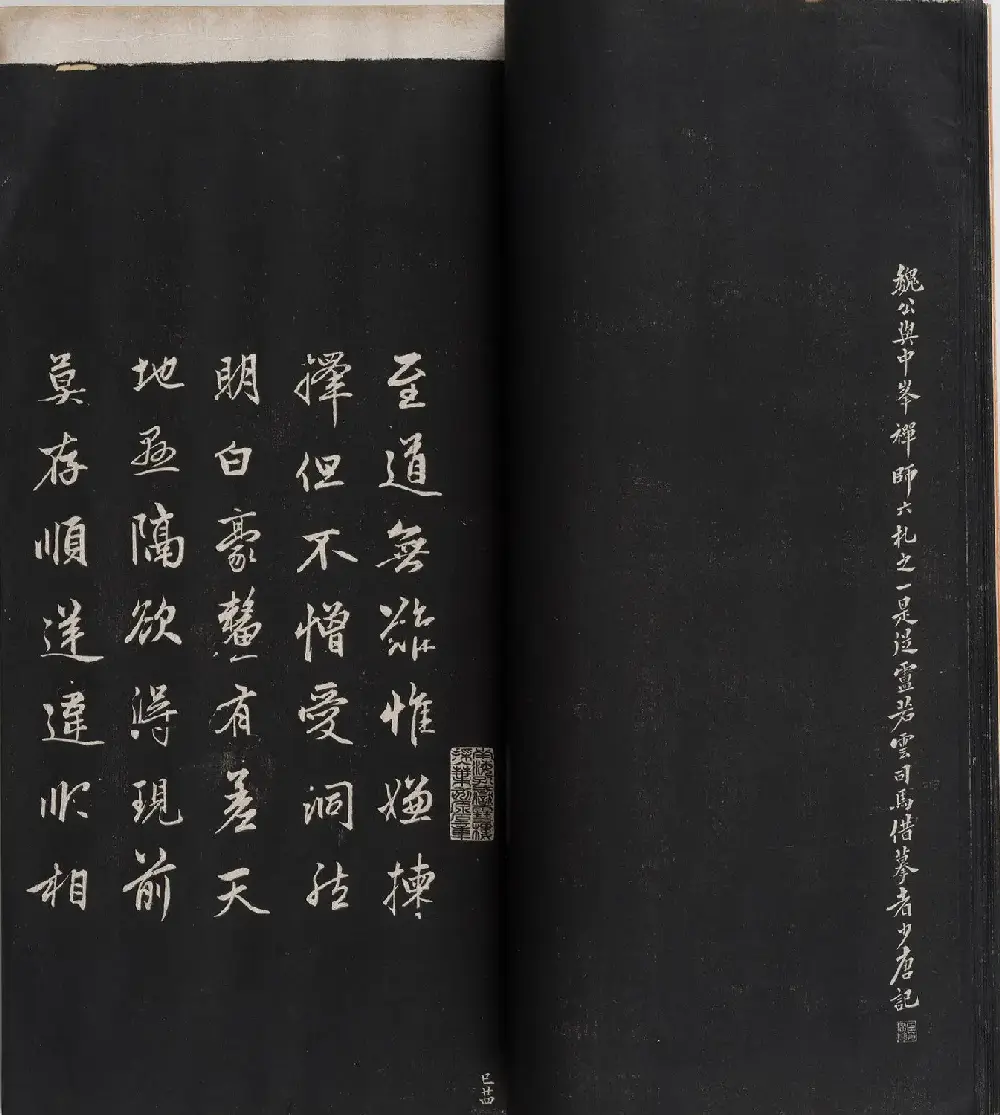 魏公與中峯禪師六札之一是從盧若雲司馬借摹者少唐記
至道無難惟嫌揀
擇但不憎愛洞然
明白豪氂有差天
地懸隔欲得現前
莫存順逆違順相
巳廿四